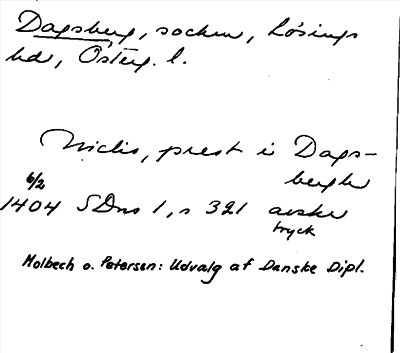 Dagsberg, socken, Lösings
hd, Österg. l.
Niclis, prest i Dags-
berghe
6/2
1404 SDns 1, s 321 avskr
tryck
Molbech o. Petersen: Udvalg af Danske Dipl.